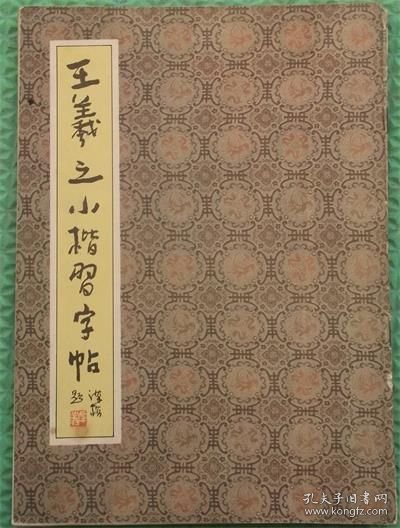 王羲之小楷習字帖
题
孔夫子旧书网
www.kongfz.com